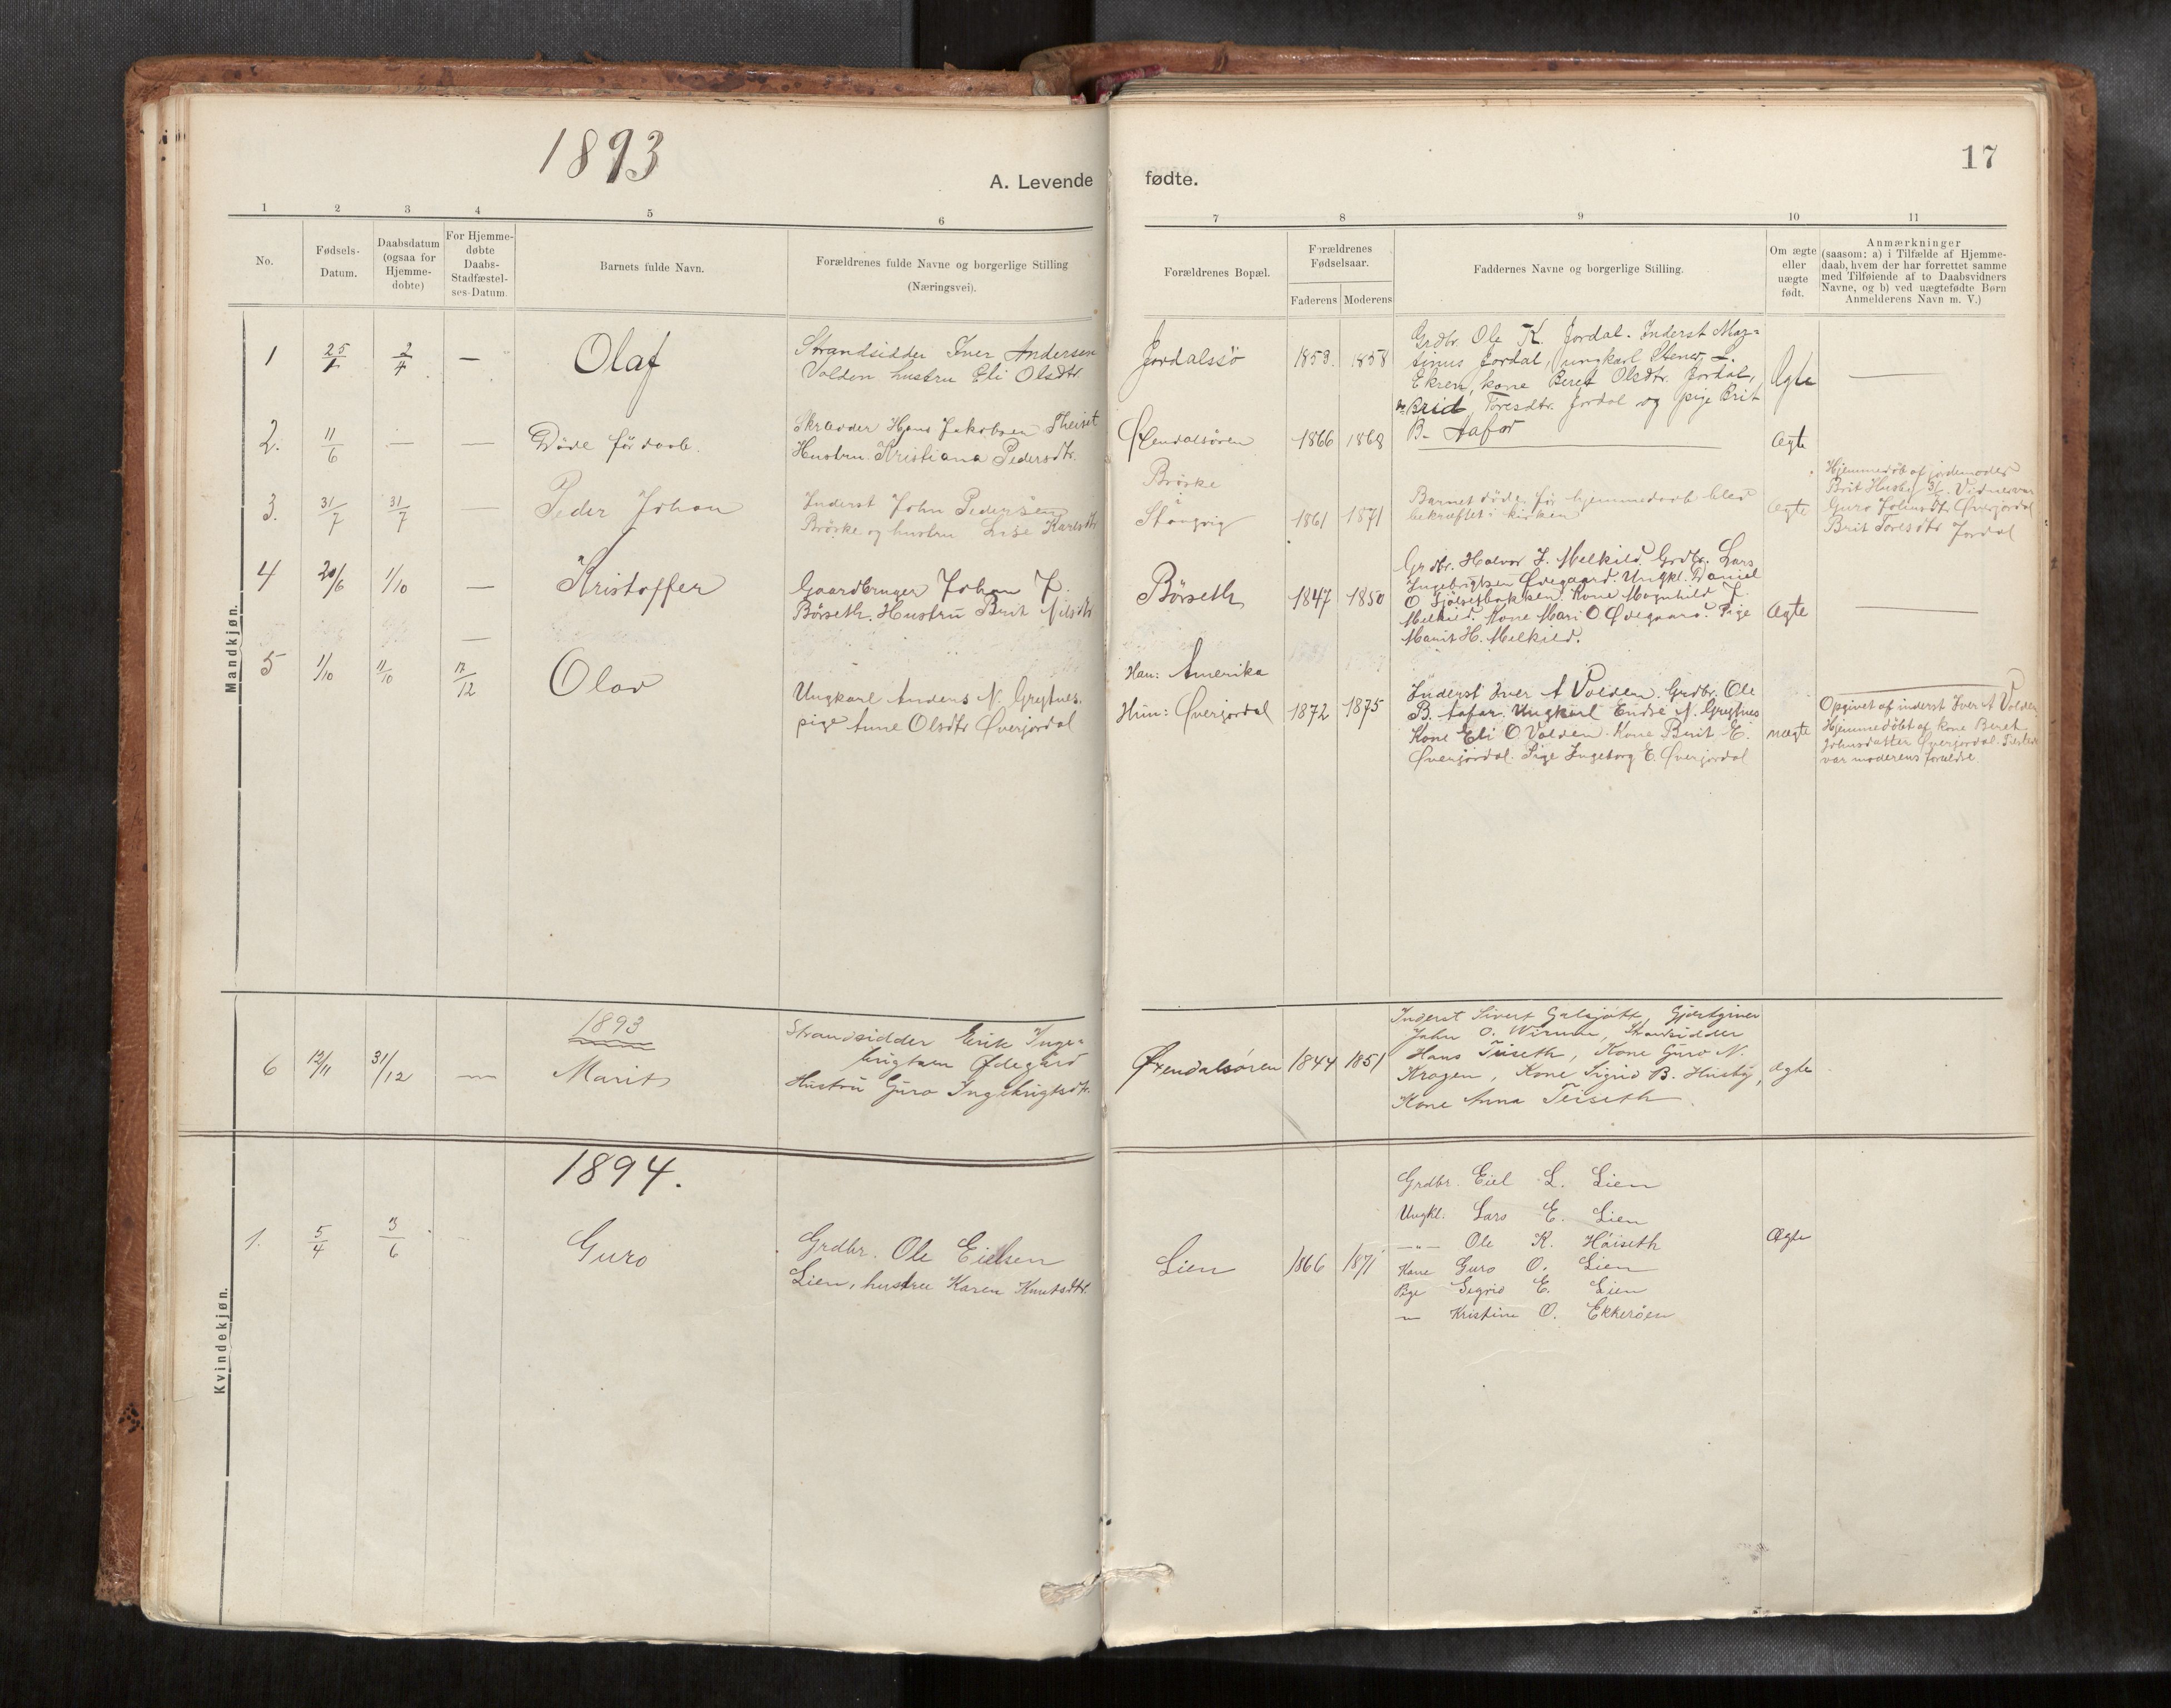 1893
17
A. Levende fødte.
1 2 3 4 5 6 7 8 9 10 11
No.
Fødsels-
Datum.
Daabsdatum
(ogsaa for
Hjemme-
døbte)
For Hjemme-
døbte
Daabs-
Stadfæstel-
ses-Datum.
Barnets fulde Navn.
Forældrenes fulde Navne og borgerlige Stilling
(Næringsvei).
Forældrenes Bopæl.
Forældrenes
Fødselsaar.
Faderens Moderens
Faddernes Navne og borgerlige Stilling.
Om ægte
eller
uægte
født.
Anmærkninger
(saasom: a) i Tilfælde af Hjemme-
daab, hvem der har forrettet samme
med Tilføiende af to Daabsvidners
Navne, og b) ved uægtefødte Børn
Anmelderens Navn m. V.)
Mandkjøn.
1 25/1 2/4 — Olaf
Strandsidder Iver Andersen
Volden hustru Eli Olsdtr.
Jordalssø 1853. 1858
Grdbr. Ole K. Jordal. Inderst Mar=
tinus Jordal, ungkarl Stener L.
Ekren, kone Beret Olsdtr. Jordal,
Brid Toresdtr. Jordal og pige Brit
B. Aafar
Ægte —
2. 11/6 — — Døde før daab.
Skrædder Hans Jakobsen Theiset
Hustru Kristiana Pedersdtr.
Øxendalsøren 1866 1868 — ægte
3. 31/7 31/7 — Peder Johan
Inderst John Pedersen
Brøske og hustru Lise Karlsdtr
Brøske
i
Stangvig 1861 1871
Barnet døde før hjemmedaab blev
bekræftet i kirken
ægte
Hjemmedøbt af jordemoder
Brit Husby 31/7. Vidner var
Guro Johnsdtr Øverjordal
Brit Toresdtr Jordal
4 20/6 1/10 — Kristoffer
Gaardbruger Johan J.
Børseth. Hustru Brit Nilsdtr
Børseth 1847 1850
Grdbr. Halvor J. Melkild. Grdbr. Lars
Ingebrigtsen Ødegaard. Ungkl. Daniel
O Fjølsetbakken. Kone Magnhild J.
Melkild. Kone Mari O Ødegaard. Pige
Marit H. Melkild.
ægte —
5 1/10 11/10 17/12 Olav
Ungkarl Anders N. Grytnes.
pige Anne Olsdtr Øverjordal
Han: Amerika
Hun: Øverjordal 1872 1875
Inderst Iver A Volden. Grdbr. Ole
B. Aafar. Ungkarl Endre N. Grytnes
Kone Eli O. Volden. Kone Brit E.
Øverjordal. Pige Ingeborg E. Øverjordal
uægte
Opgivet af inderst Iver A Volden
Hjemmedøbt af kone Beret
Johnsdatter Øverjordal.
var moderens forældre.
Kvindekjøn.
1893
6 12/11 31/12 — Marit
Strandsidder Erik Inge=
brigtsen Ødegård
Hustru Guro Ingebrigtsdtr.
Øxendalsøren 1844 1851
Inderst Sivert Gjestgiver
John O. Strandsidder
Hans Teiseth, Kone Guro N.
Kragen, Kone Sigrid B. Husby,
Kone Anna Teiseth.
ægte
1894.
1. 5/4 3/6 Guro
Grdbr. Ole Eielsen
Lien, hustru Karen Knutsdtr.
Lien 1866 1871
Grdbr. Eiel L. Lien
Ungkl. Lars E. Lien
—"— Ole K. Høiseth
Kone Guro O. Lien
Pige Sigrid E. Lien
— Kristine O. Ekkerøen
Ægte